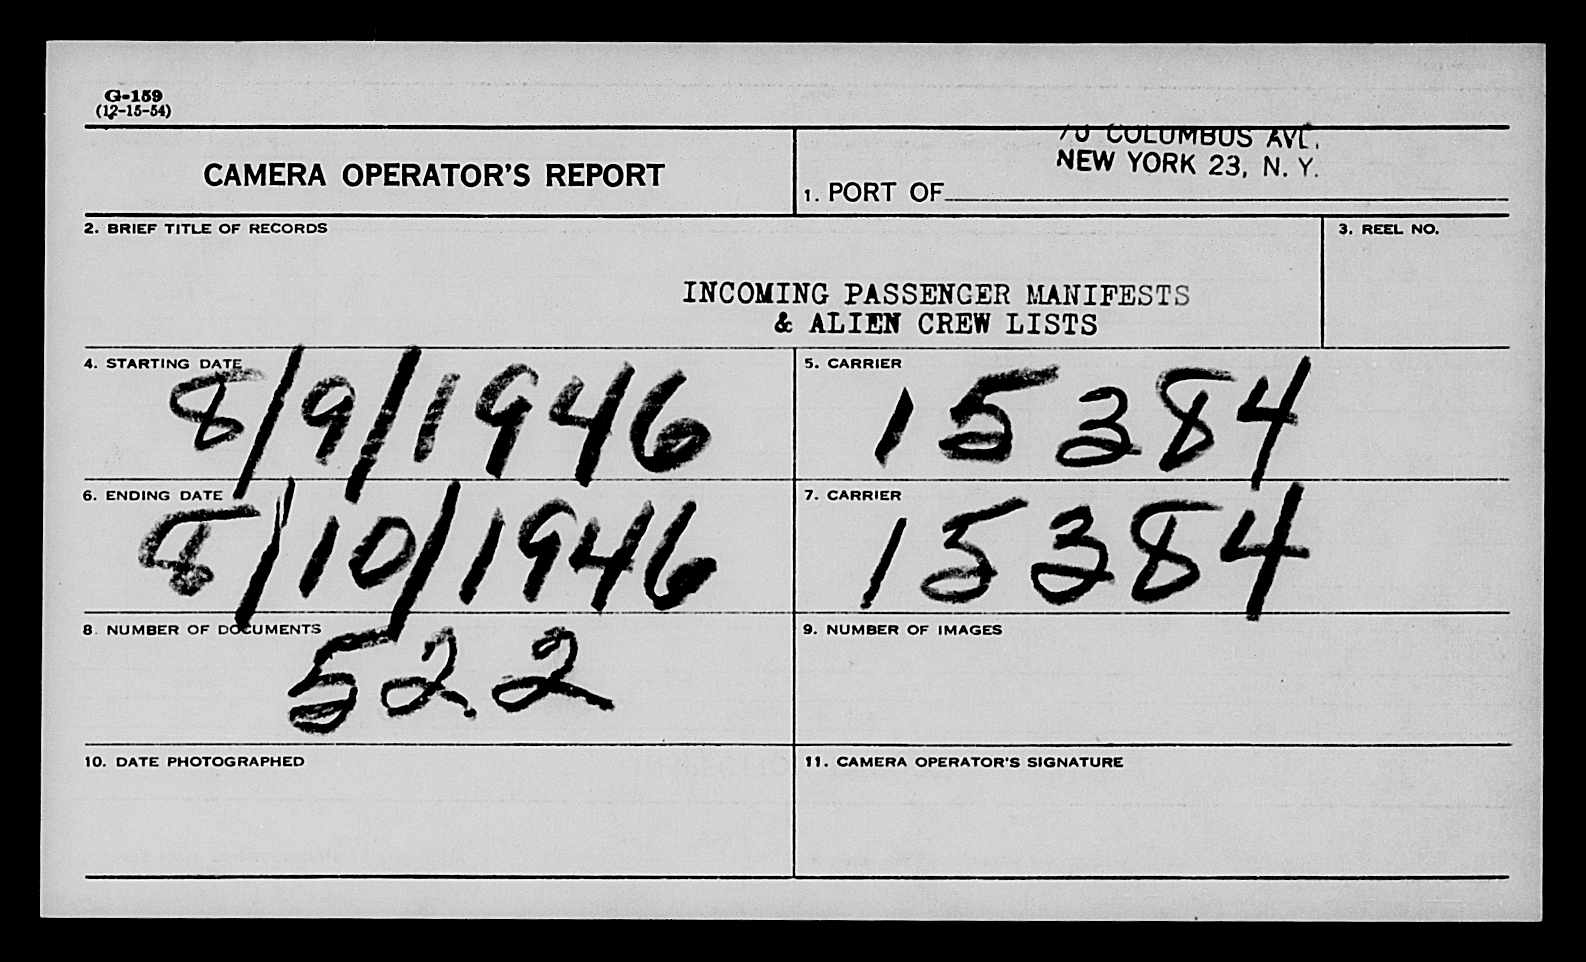 G-159
(12-15-54)
CAMERA OPERATOR'S REPORT
70 COLUMBUS AVE.
NEW YORK 23, N. Y.
1. PORT OF
2. BRIEF TITLE OF RECORDS
3. REEL NO.
INCOMING PASSENGER MANIFESTS
& ALIEN CREW LISTS
4. STARTING DATE
8/9/1946
5. CARRIER
15384
6. ENDING DATE
8/10/1946
7. CARRIER
15384
8. NUMBER OF DOCUMENTS
522
9. NUMBER OF IMAGES
10. DATE PHOTOGRAPHED
11. CAMERA OPERATOR'S SIGNATURE